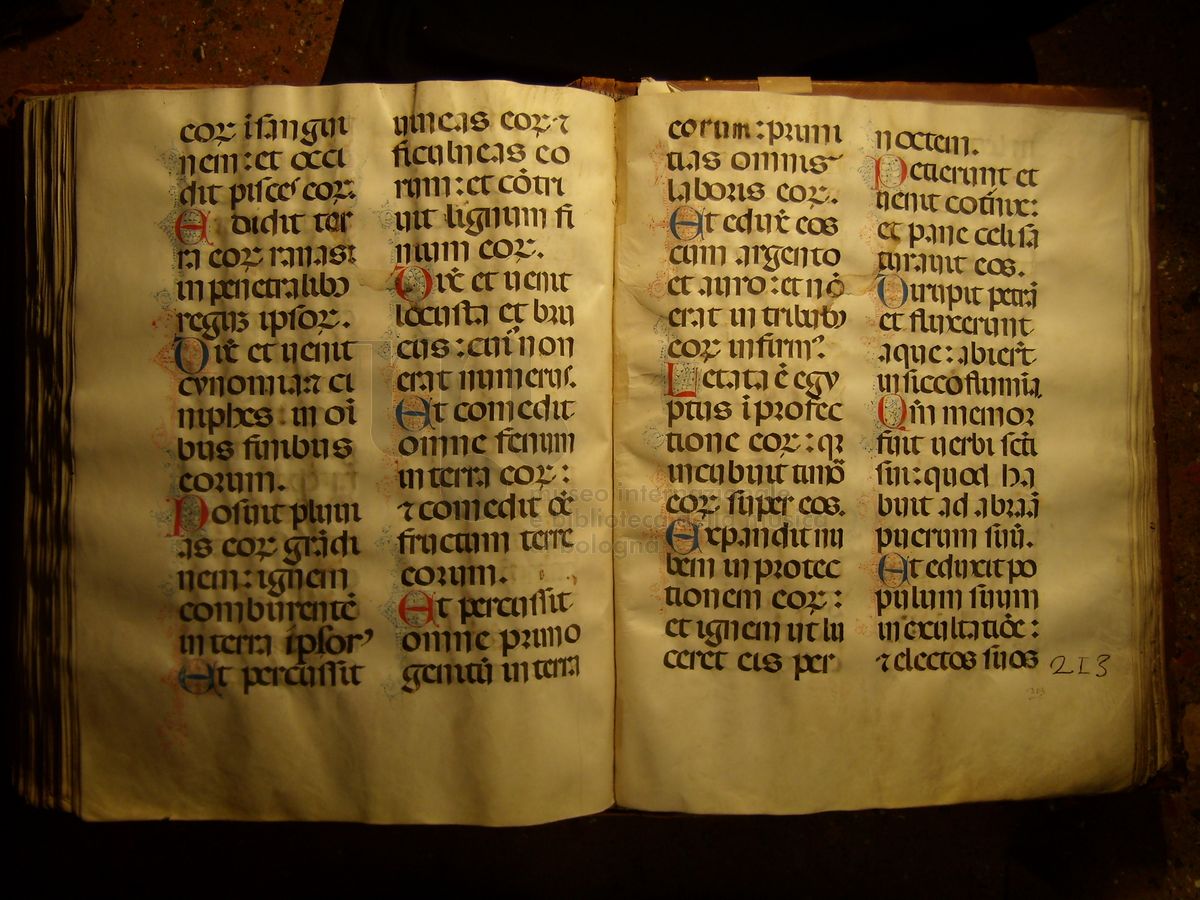 eoꝝ ī sangui
nem: et occi
dit pisces eoꝝ.
Edidit ter
ra eoꝝ ranas ī
in penetralibꝰ
regūꝫ ipsoꝝ.
Dix̄ et uenit
cynomiaꝛ ci
niphes in oī
bus finibus
eorum.
Posuit pluui
as eoꝝ grādi
nem: ignem
comburentē
in terra ipsor’
Et percussit
uineas eoꝝ ⁊
ficulneas eo
rum: et cōtri
uit lignum fi
nium eoꝝ.
Dix̄ et uenit
locusta et bru
cus: cui᷒ non
erat numerus.
Et comedit
omne fenum
in terra eoꝝ:
⁊ comedit oē
fructum terre
eorum.
Et percussit
omne primo
genitū in terra
eorum: primi
tias omnis
laboris eoꝝ.
Et edux̄ eos
cum argento
et auro: et nō
erat in tribubꝫ
eoꝝ infirm᷒.
Letata ē egy
ptus ī profec
tione eoꝝ: qꝛ
incubuit timō
eoꝝ super eos.
Expandit nu
bem in protec
tionem eoꝝ:
et ignem ut lu
ceret eis per
noctem.
Petierunt et
uenit cotīnix:
et pane celi sa
turauit eos.
Dirupit petrā
et fluxerunt
aque: abier̄t
in sicco flumīa.
Qm̄ memor
fuit uerbi scī
sui: quod ha
buit ad abraā
puerum suū.
Et eduxit po
pulum suum
in exultatiōe:
⁊ electos suos
213
museo internazionale
e biblioteca della musica
bologna